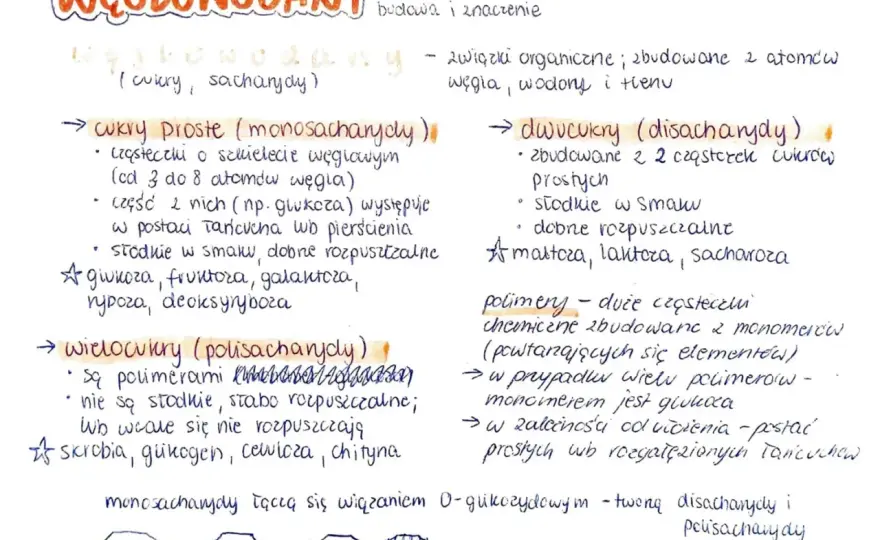 WĘGLOWODANY
budowa i znaczenie
węglowodany - związki organiczne; zbudowane z atomów
(cukry, sacharydy) węgla, wodoru i tlenu
→ cukry proste (monosacharydy)
• cząsteczki o szkielecie węglowym
(od 3 do 8 atomów węgla)
• część z nich (np. glukoza) występuje
w postaci łańcucha lub pierścienia
• słodkie w smaku, dobrze rozpuszczalne
☆ glukoza, fruktoza, galaktoza,
ryboza, deoksyryboza
→ dwucukry (disacharydy)
• zbudowane z 2 cząsteczek cukrów
prostych
• słodkie w smaku
• dobrze rozpuszczalne
☆ maltoza, laktoza, sacharoza
→ wielocukry (polisacharydy)
• są polimerami
• nie są słodkie, słabo rozpuszczalne;
lub wcale się nie rozpuszczają
☆ skrobia, glikogen, celuloza, chityna
polimery - duże cząsteczki
chemiczne zbudowane z monomerów
(powtarzających się elementów)
→ w przypadku wielu polimerów -
monomerem jest glukoza
→ w zależności od ułożenia - postać
prostych lub rozgałęzionych łańcuchów
monosacharydy łączą się wiązaniem O-glikozydowym - tworzą disacharydy i
polisacharydy